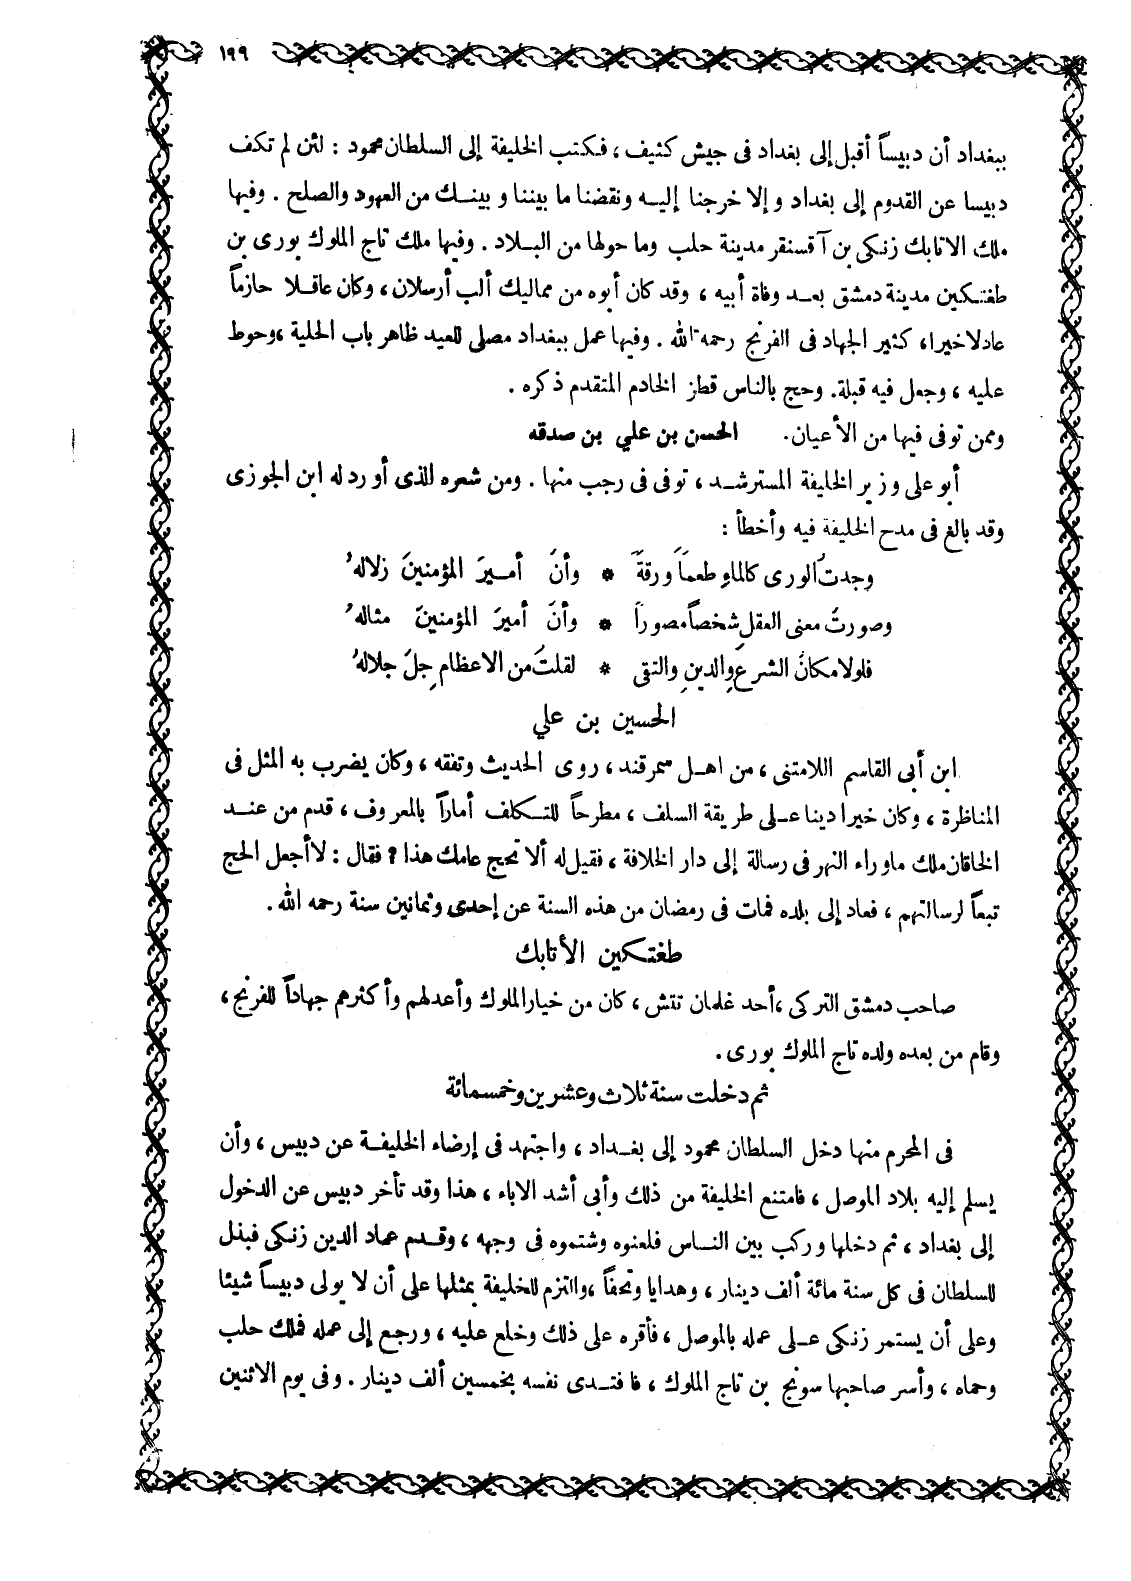 ١٩٩
ببغداد أن دبيساً أقبل إلى بغداد فى جيش كثيف ، فكتب الخليفة إلى السلطان محمود : لئن لم تكف
دبيسا عن القدوم إلى بغداد وإلا خرجنا إليه ونقضنا ما بيننا وبينك من العهود والصلح . وفيها
ملك الاتابك زنكى بن آقسنقر مدينة حلب وما حولها من البلاد . وفيها ملك تاج الملوك بورى بن
طغتكين مدينة دمشق بعد وفاة أبيه ، وقد كان أبوه من مماليك ألب أرسلان ، وكان عاقلا حازماً
عادلا خيرا ، كثير الجهاد فى الفرنج رحمه الله . وفيها عمل ببغداد مصلى للعيد ظاهر باب الحلية ، وحوط
عليه ، وجعل فيه قبلة . وحج بالناس قطز الخادم المتقدم ذكره .
وممن توفى فيها من الأعيان . الحسن بن علي بن صدقه
أبو على وزير الخليفة المسترشد ، توفى فى رجب منها . ومن شعره الذى أورد له ابن الجوزى
وقد بالغ فى مدح الخليفة فيه وأخطأ :
وجدتُ الورى كالماءِ طعماً ورقةً * وأنَ أميرَ المؤمنينَ زلالهُ
وصورتُ معنى العقلِ شخصاً مصوراً * وأنَ أميرَ المؤمنينَ مثالهُ
فلولا مكانُ الشرعِ والدينِ والتقى * لقلتُ من الاعظامِ جلَ جلالهُ
الحسين بن علي
ابن أبى القاسم اللامتنى ، من اهل سمرقند ، روى الحديث وتفقه ، وكان يضرب به المثل فى
المناظرة ، وكان خيرا دينا على طريقة السلف ، مطرحاً للتكلف أماراً بالمعروف ، قدم من عند
الخاقان ملك ماوراء النهر فى رسالة إلى دار الخلافة ، فقيل له ألا تحج عامك هذا ؟ فقال : لا أجعل الحج
تبعاً لرسالتهم ، فعاد إلى بلده فمات فى رمضان من هذه السنة عن إحدى وثمانين سنة رحمه الله .
طغتكين الأتابك
صاحب دمشق التركى ، أحد غلمان تتش ، كان من خيار الملوك وأعدلهم وأكثرهم جهاداً للفرنج ،
وقام من بعده ولده تاج الملوك بورى .
ثم دخلت سنة ثلاث وعشرين وخمسمائة
فى المحرم منها دخل السلطان محمود إلى بغداد ، واجتهد فى إرضاء الخليفة عن دبيس ، وأن
يسلم إليه بلاد الموصل ، فامتنع الخليفة من ذلك وأبى أشد الاباء ، هذا وقد تأخر دبيس عن الدخول
إلى بغداد ، ثم دخلها وركب بين الناس فلعنوه وشتموه فى وجهه ، وقدم عماد الدين زنكى فبذل
للسلطان فى كل سنة مائة ألف دينار ، وهدايا وتحفاً ، والتزم للخليفة بمثلها على أن لا يولى دبيساً شيئا
وعلى أن يستمر زنكى على عمله بالموصل ، فأقره على ذلك وخلع عليه ، ورجع إلى عمله فملك حلب
وحماه ، وأسر صاحبها سونج بن تاج الملوك ، فافتدى نفسه بخمسين ألف دينار . وفى يوم الاثنين